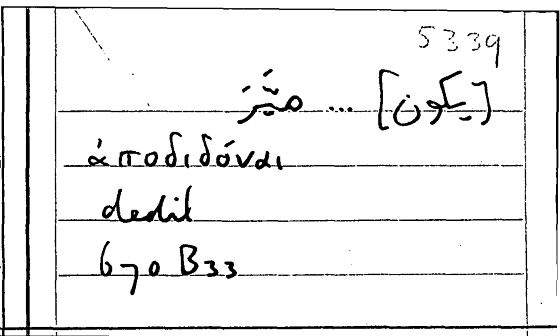 5339
[يكون] ... ميّز
ἀποδιδόναι
dedit
670 B33